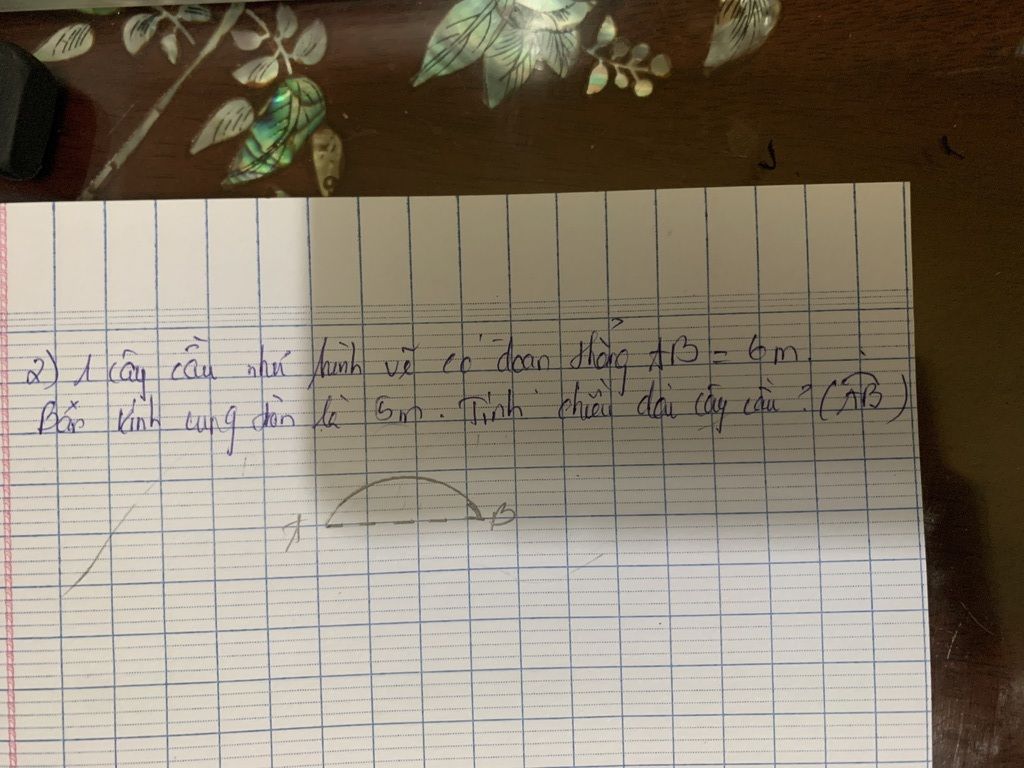 2) 1 cây cầu như hình vẽ có đoạn thẳng AB = 6m
Bán kính cung tròn là 5m. Tính chiều dài cây cầu? (AB)
A B